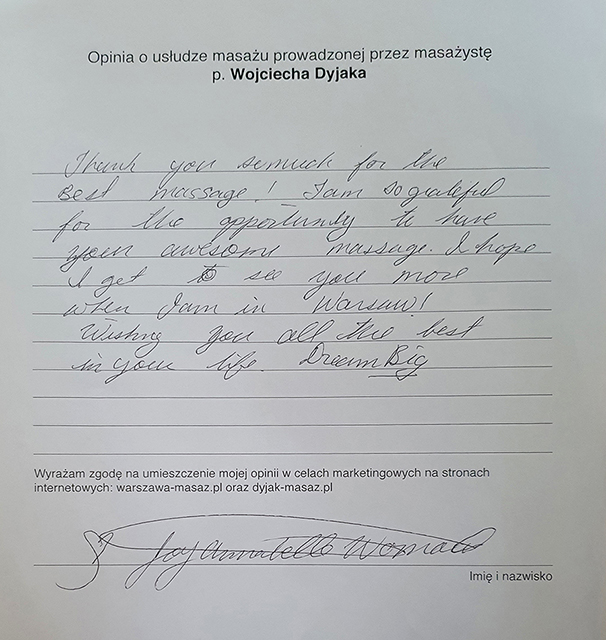 Opinia o usłudze masażu prowadzonej przez masażystę
p. Wojciecha Dyjaka
Thank you somuch for the
Best massage! I am so grateful
for the opportunity to have
your awesome massage. I hope
I get to see you more
when I am in Warsaw!
Wishing you all the best
in your life. Dream Big
Wyrażam zgodę na umieszczenie mojej opinii w celach marketingowych na stronach
internetowych: warszawa-masaz.pl oraz dyjak-masaz.pl
Joy
Imię i nazwisko